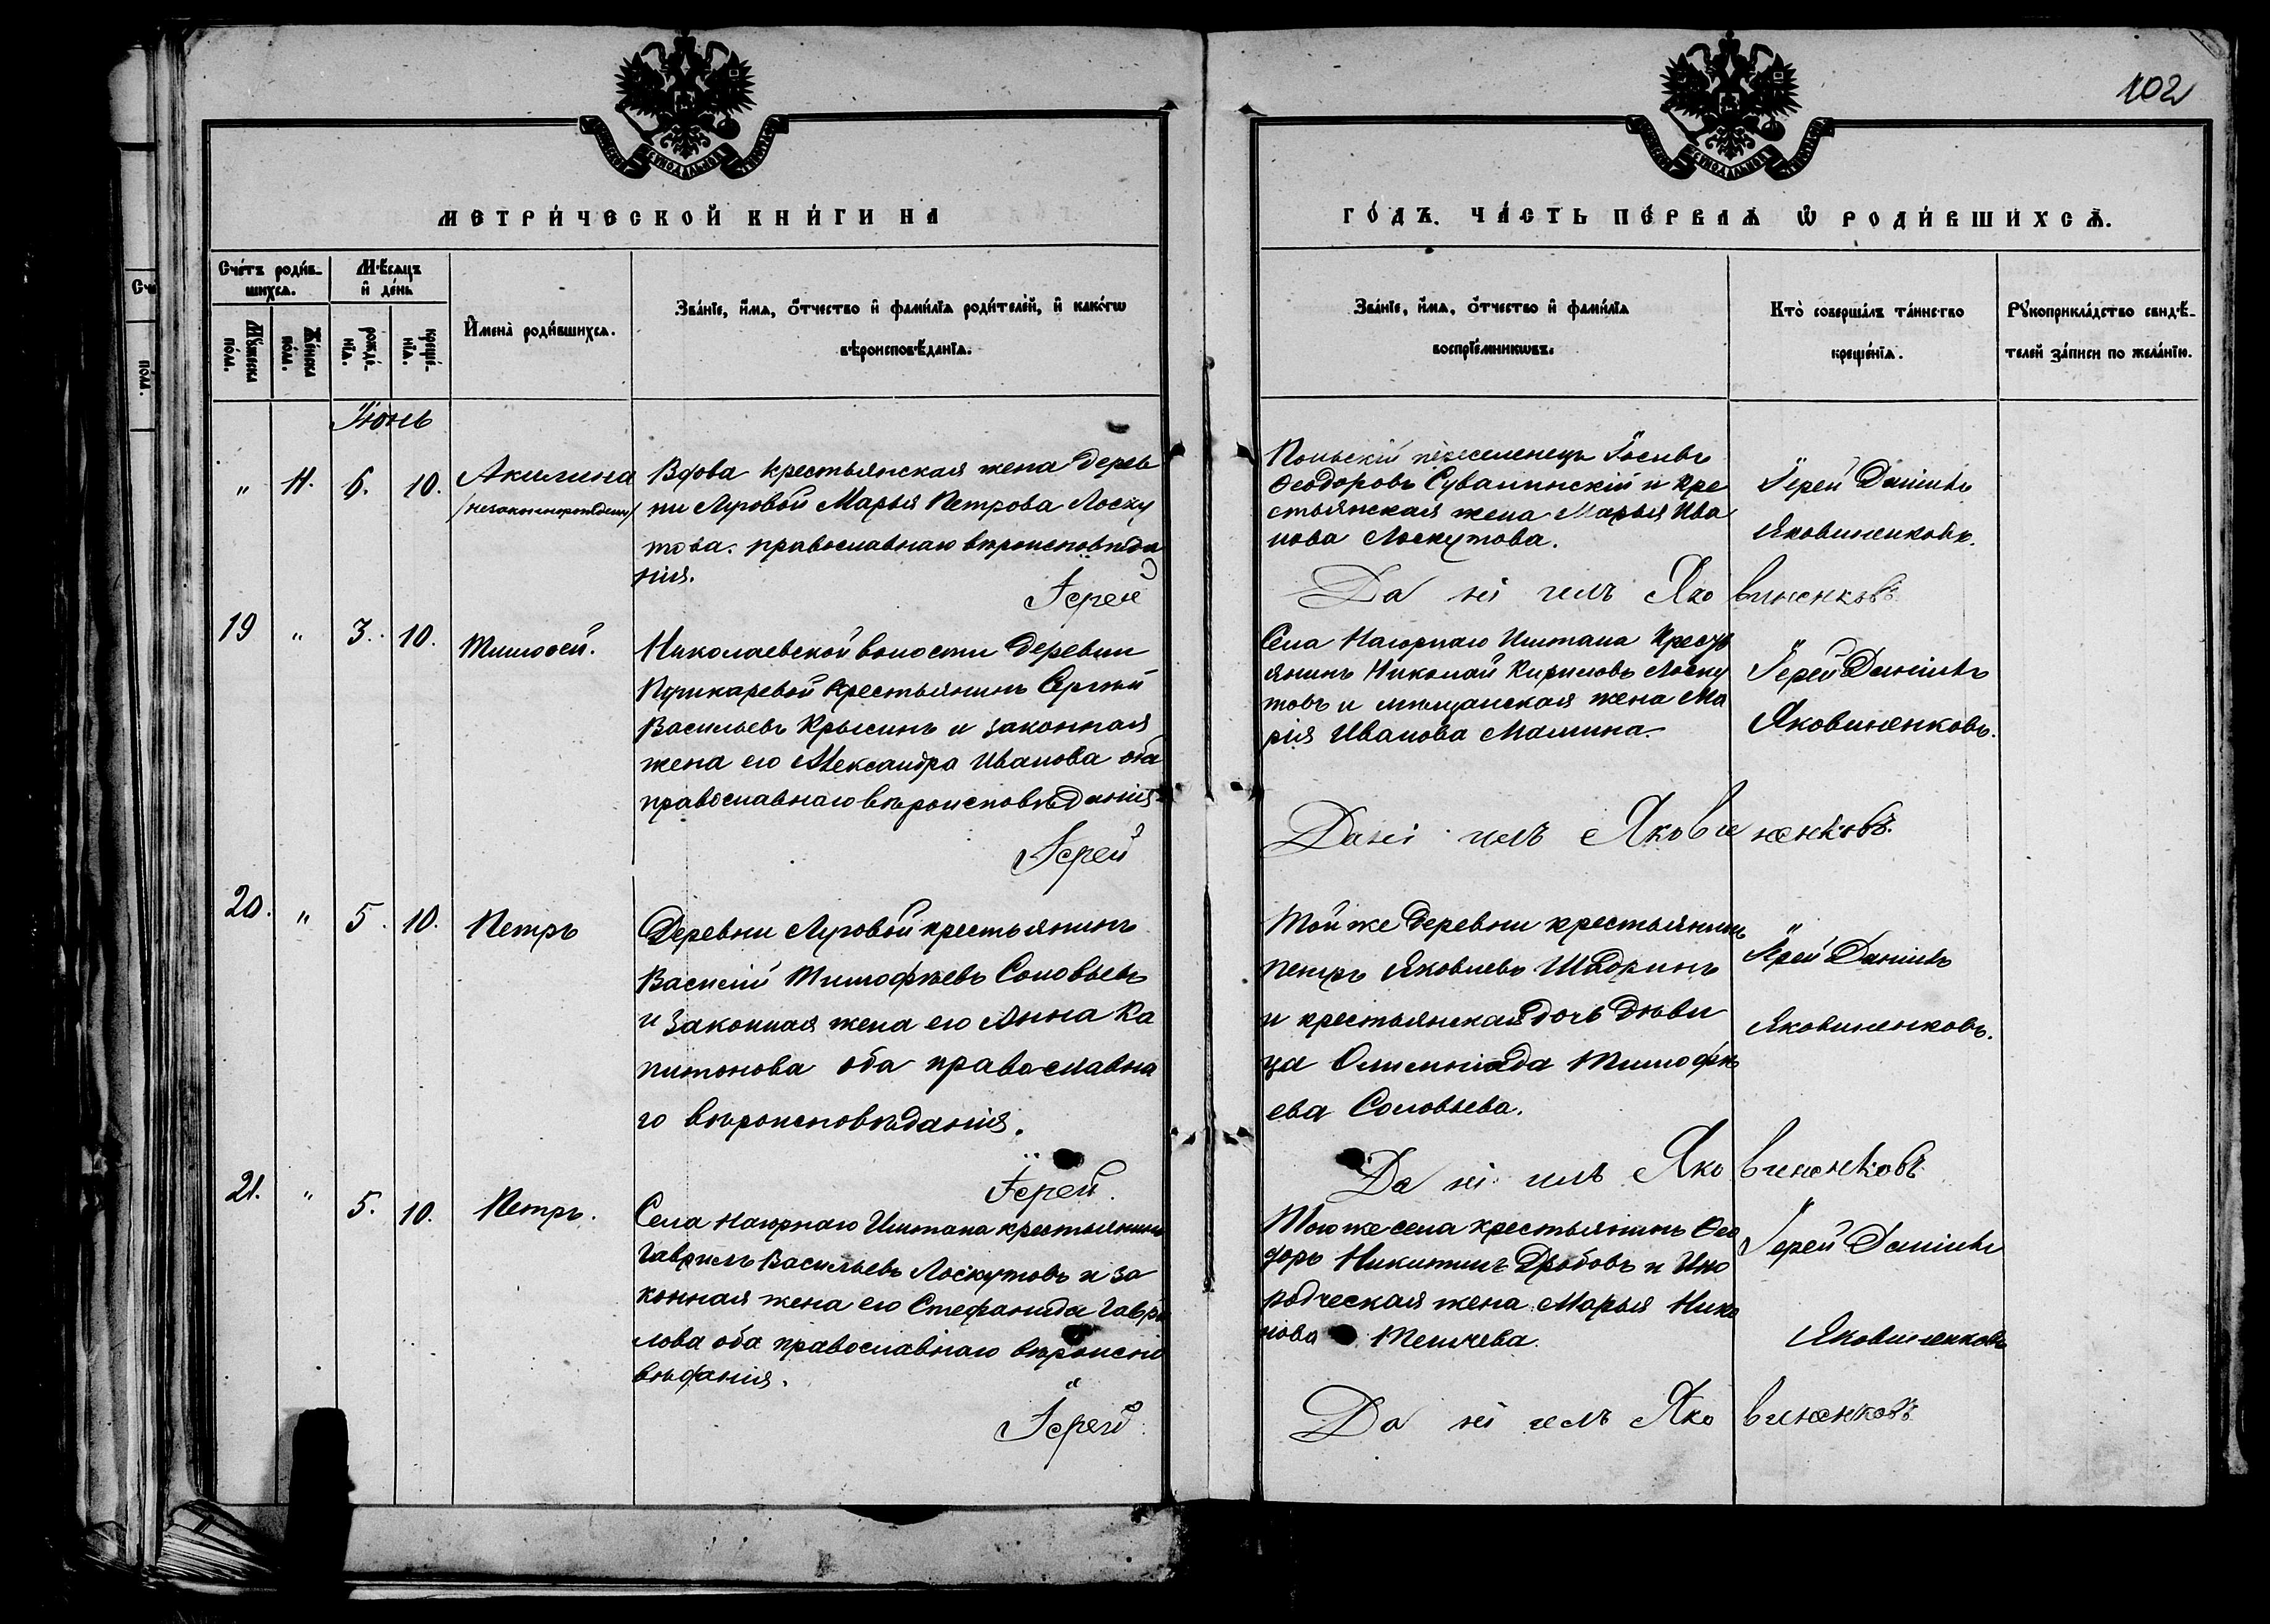 102
МЕТРИ́ЧЕСКОЙ КНИ́ГИ НА
ГО́ДЪ. ЧА́СТЬ ПЕ́РВАѦ Ѿ РОДИ́ВШИХСѦ.
Сче́тъ роди́в-
шихсѧ.
Мѣ́сяцъ
и҆ де́нь
Мꙋ́жеска
по́ла.
Же́нска
по́ла.
рожде́-
нїѧ.
креще́-
нїѧ.
И҆мена̀ роди́вшихсѧ.
Зва́нїе, и҆́мѧ, о҆́тчество и҆ фами́лїѧ роди́телей, и҆ како́гѡ
вѣроисповѣ́данїѧ.
Зва́нїе, и҆́мѧ, о҆́тчество и҆ фами́лїѧ
воспрїе́мникѡвъ.
Кто̀ соверша́лъ та́инство
креще́нїѧ.
Рꙋкоприкла́дство свидѣ́-
телей за́писи по жела́нїю.
Іюнь
" 11. 6. 10. Акилина
/незаконнорожден/
Вдова крестьянская жена дерев
ни Луговой Марья Петрова Лоску
това. православнаго вѣроисповѣда
нія.
Іерей
Польскій переселенецъ Іосифъ
Ѳеодоровъ Сувалинскій и кре
стьянская жена Марья Ива
нова Лоскутова.
Іерей Даніилъ
Яковиненковъ.
Да ні илъ Яко виненковъ
19 " 3. 10. Тимоѳей.
Николаевской волости деревни
Пушкаревой крестьянинъ Сергѣй
Васильевъ Крысинъ и законная
жена его Александра Иванова оба
православнаго вѣроисповѣданія
Іерей
Села Нагорнаго Иштана крестья
янинъ Николай Кириловъ Лоску
товъ и мѣщанская жена Ма
рія Иванова Машина.
Іерей Даніилъ
Яковиненковъ.
Дані илъЯкови ненковъ.
20. " 5. 10. Петръ
Деревни Луговой крестьянинъ
Василій Тимофѣевъ Соловьевъ
и законная жена его Анна Ка
питонова оба православна
го вѣроисповѣданія.
Іерей.
Той же деревни крестьянинъ
Петръ Яковлевъ Шадринъ
и крестьянская дочь дѣви
ца Олимпіада Тимофѣ
ева Соловьева.
Іерей Даніилъ
Яковиненковъ.
Да ні илъ Яко виненковъ
21. " 5. 10. Петръ.
Села Нагорнаго Иштана крестьянинъ
Гаврилъ Васильевъ Лоскутовъ и за
конная жена его Стефанида Гаври
лова оба православнаго вѣроиспо
вѣданія.
Іерей
Того же села крестьянинъ Ѳео
доръ Никитинъ Дробовъ и Ино
родческая жена Марья Нико
нова Тенчева.
Іерей Даніилъ
Яковиненковъ
Да ні илъ Яко виненковъ